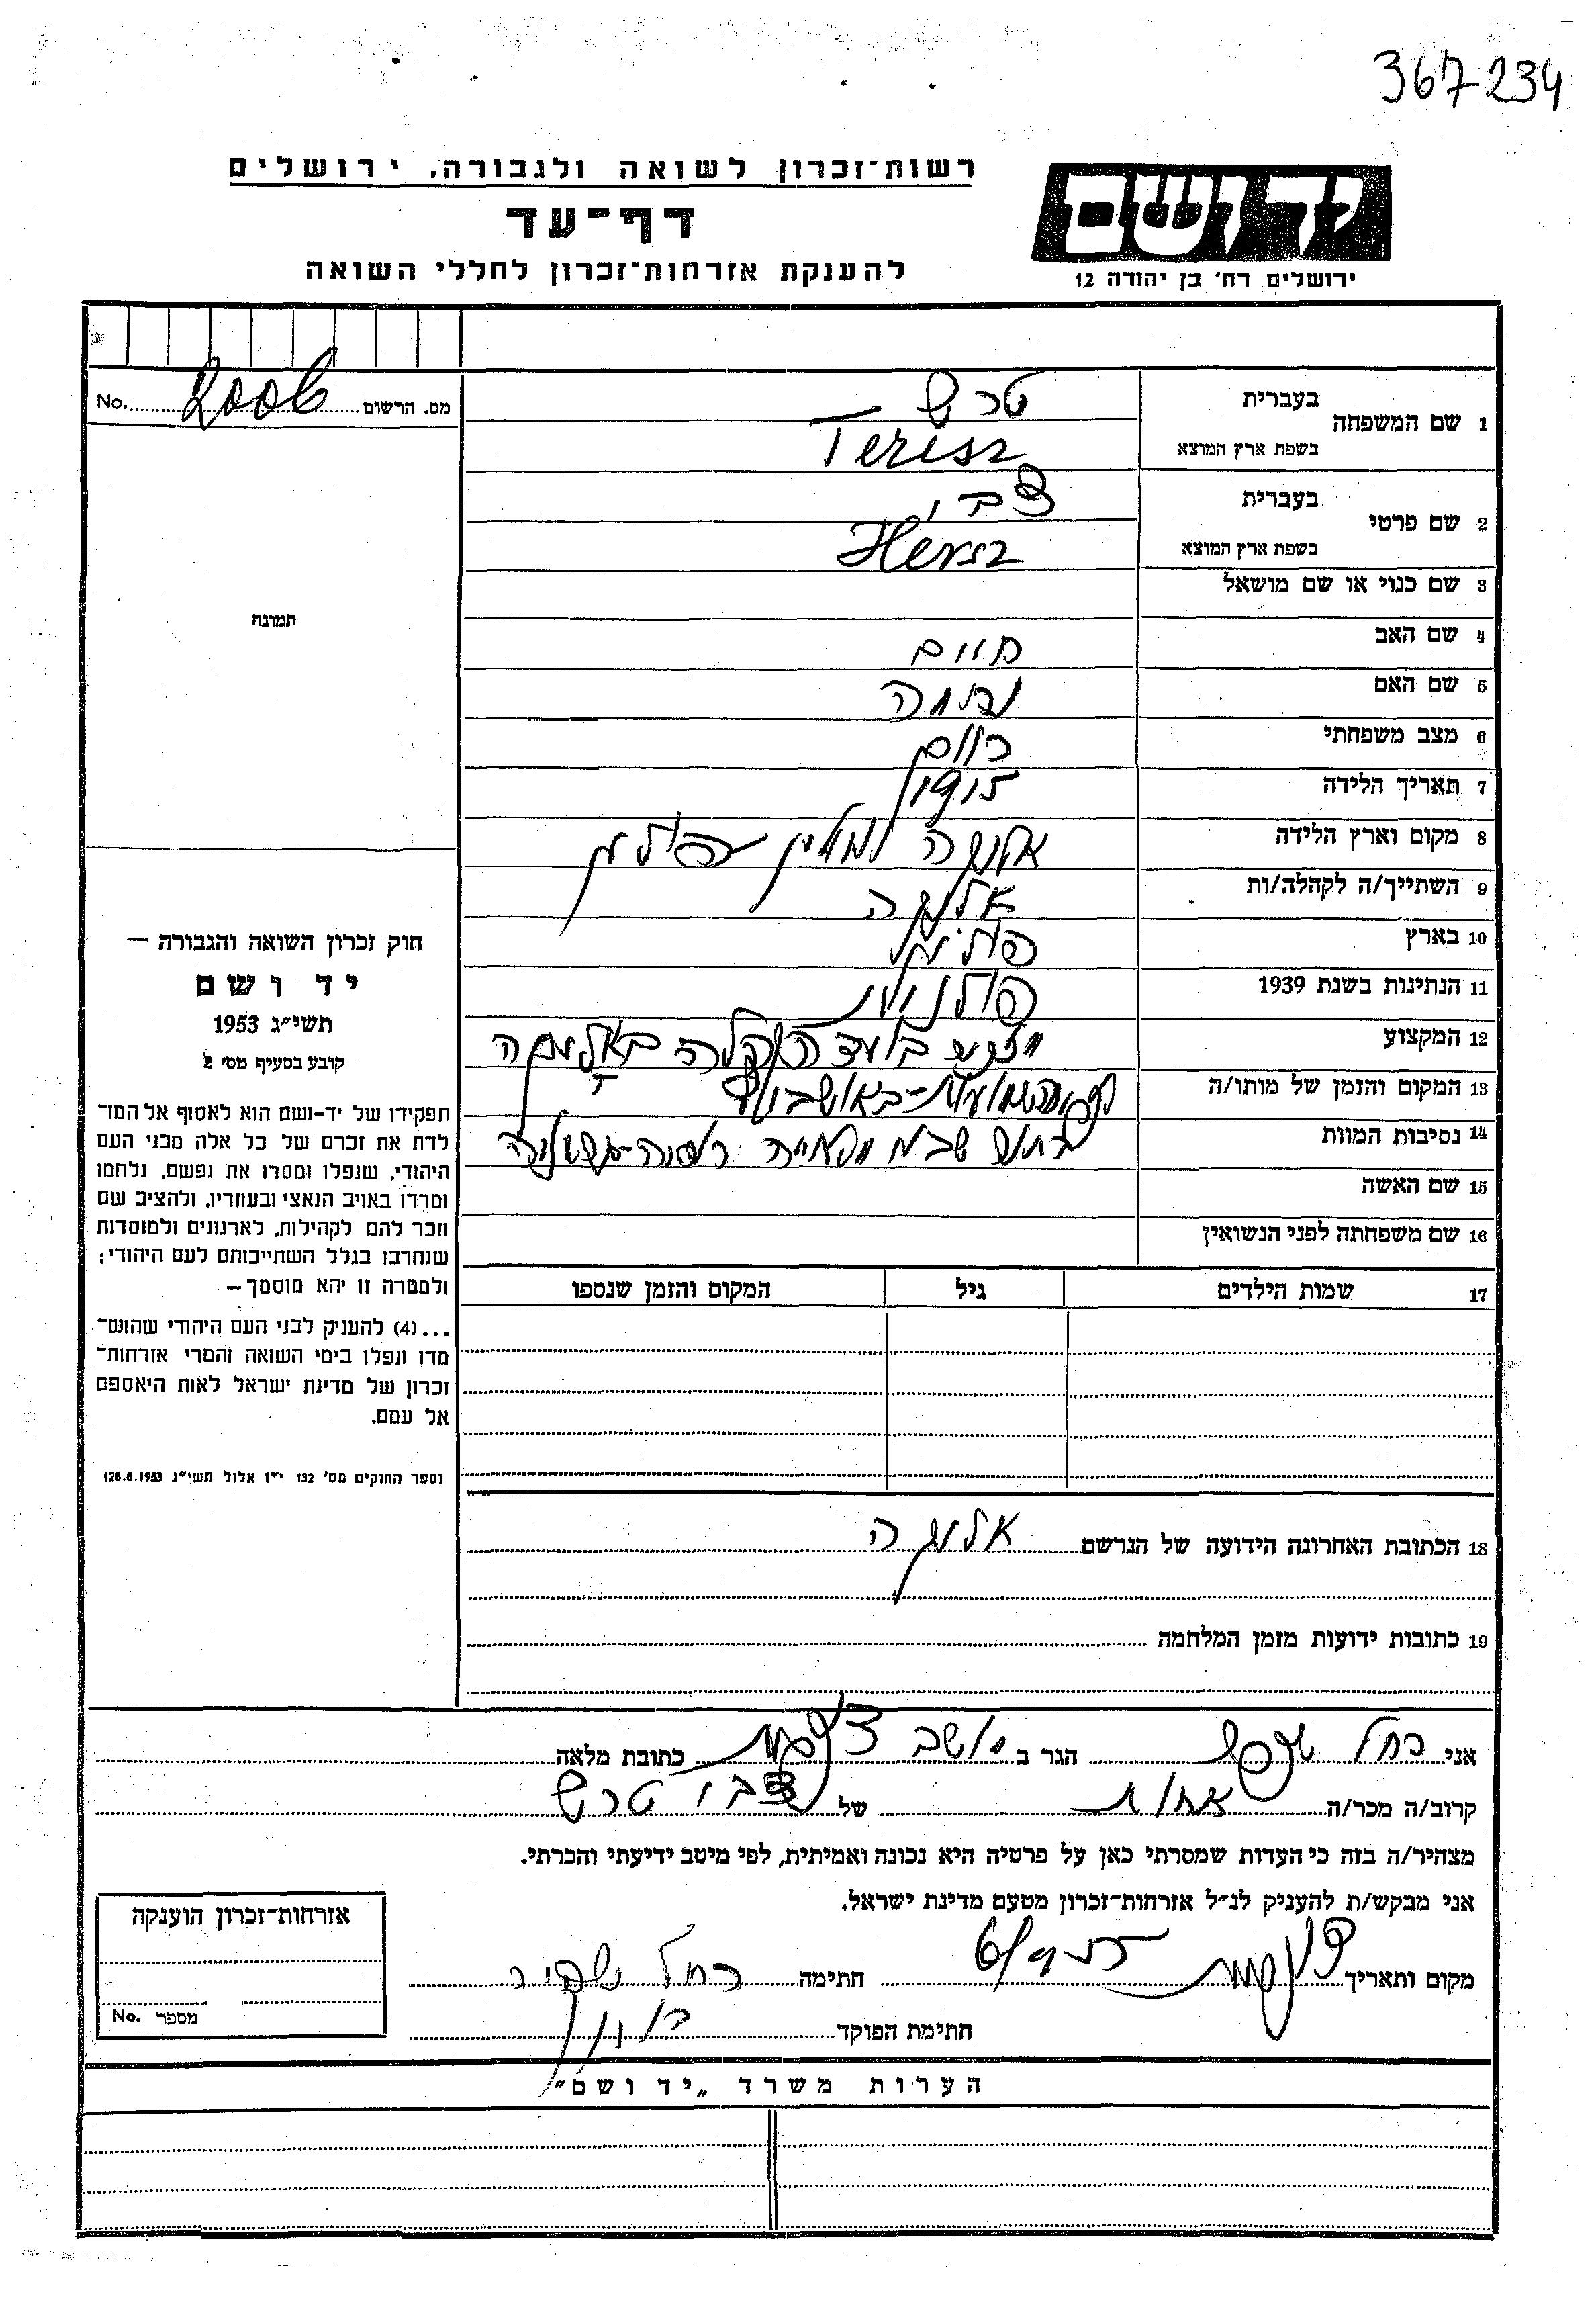 367234
רשות־זכרון לשואה ולגבורה, ירושלים
יד ושם
דף־עד
ירושלים רח׳ בן יהודה 12
להענקת אזרחות־זכרון לחללי השואה
מס. הרשום 2006 No.
תמונה
חוק זכרון השואה והגבורה —
יד ושם
תשי״ג 1953
קובע בסעיף מס׳ 2
תפקידו של יד-ושם הוא לאסוף אל המו־
לדת את זכרם של כל אלה מבני העם
היהודי, שנפלו ומסרו את נפשם, נלחמו
ומרדו באויב הנאצי ובעוזריו, ולהציב שם
וזכר להם לקהילות, לארגונים ולמוסדות
שנחרבו בגלל השתייכותם לעם היהודי;
ולמטרה זו יהא מוסמך –
...(4) להעניק לבני העם היהודי שהוש־
מדו ונפלו בימי השואה והמרי אזרחות־
זכרון של מדינת ישראל לאות היאספם
אל עמם.
(ספר החוקים מס׳ 132 י״ז אלול תשי״ג 28.8.1953)
1 שם המשפחה בעברית טרש
בשפת ארץ המוצא Teresz
2 שם פרטי בעברית צבי
בשפת ארץ המוצא Hersz
3 שם כנוי או שם מושאל
4 שם האב חיים
5 שם האם נחמה
6 מצב משפחתי
7 תאריך הלידה 1915
8 מקום וארץ הלידה פולין
9 השתייך/ה לקהלה/ות
10 בארץ פולין
11 הנתינות בשנת 1939 פולנית
12 המקצוע בועד הקהלה
13 המקום והזמן של מותו/ה
14 נסיבות המוות
15 שם האשה
16 שם משפחתה לפני הנשואין
17 שמות הילדים גיל המקום והזמן שנספו
18 הכתובת האחרונה הידועה של הנרשם
19 כתובות ידועות מזמן המלחמה
אני רחל הגר ב מושב כתובת מלאה
קרוב/ה מכר/ה אחות של צבי טרש
מצהיר/ה בזה כי העדות שמסרתי כאן על פרטיה היא נכונה ואמיתית, לפי מיטב ידיעתי והכרתי.
אני מבקש/ת להעניק לנ״ל אזרחות-זכרון מטעם מדינת ישראל.
מקום ותאריך חתימה רחל
חתימת הפוקד
אזרחות־זכרון הוענקה
מספר No.
הערות משרד „יד ושם״